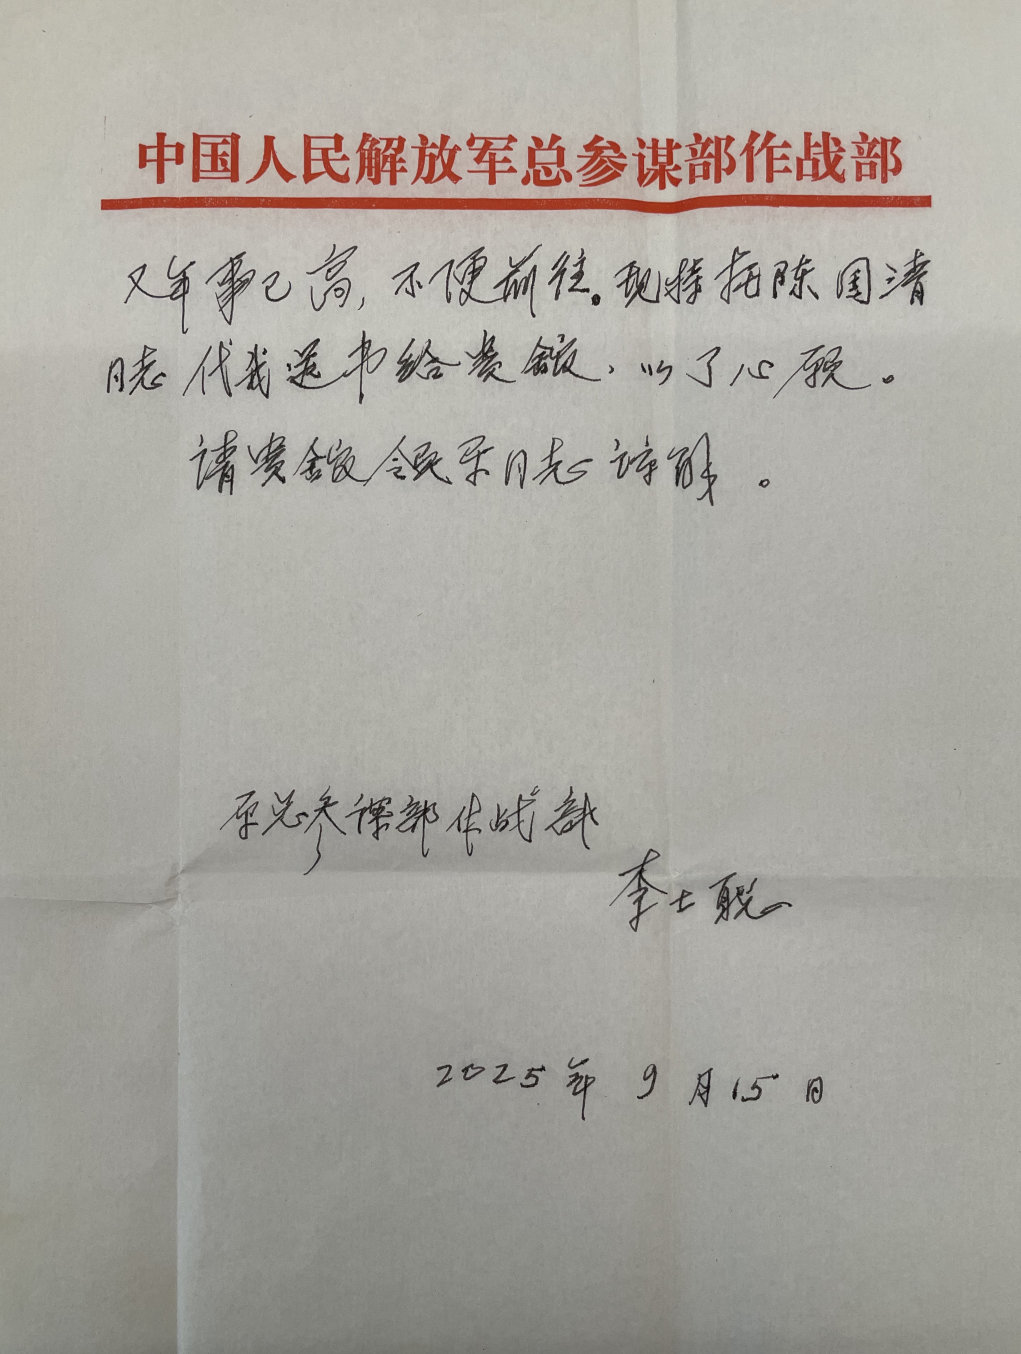 中国人民解放军总参谋部作战部
又年事已高，不便前往。现特托陈国清
同志代我送书给贵馆，以了心愿。
请贵馆领导同志谅解。
原总参谋部作战部
李士聪
2025年9月15日